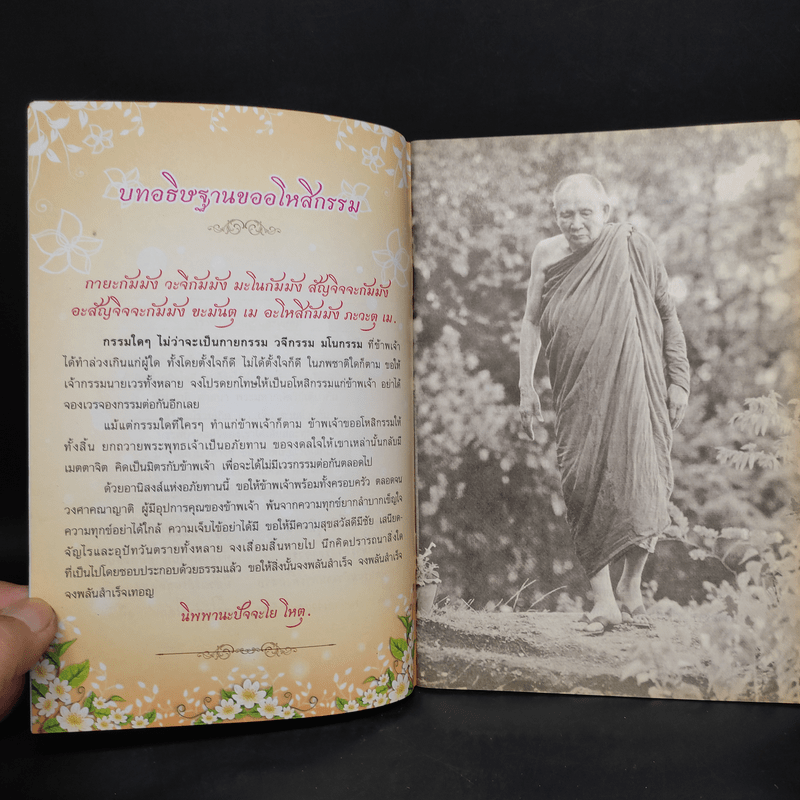 บทอธิษฐานขออโหสิกรรม
กายะกัมมัง วะจีกัมมัง มะโนกัมมัง สัญจิจจะกัมมัง
อะสัญจิจจะกัมมัง ขะมันตุ เม อะโหสิกัมมัง ภะวะตุ เม.
กรรมใดๆ ไม่ว่าจะเป็นกายกรรม วจีกรรม มโนกรรม ที่ข้าพเจ้า
ได้ทำล่วงเกินแก่ผู้ใด ทั้งโดยตั้งใจก็ดี ไม่ได้ตั้งใจก็ดี ในภพชาติใดก็ตาม ขอให้
เจ้ากรรมนายเวรทั้งหลาย จงโปรดยกโทษให้เป็นอโหสิกรรมแก่ข้าพเจ้า อย่าได้
จองเวรจองกรรมต่อกันอีกเลย
แม้แต่กรรมใดที่ใครๆ ทำแก่ข้าพเจ้าก็ตาม ข้าพเจ้าขออโหสิกรรมให้
ทั้งสิ้น ยกถวายพระพุทธเจ้าเป็นอภัยทาน ขอจงดลใจให้เขาเหล่านั้นกลับมี
เมตตาจิต คิดเป็นมิตรกับข้าพเจ้า เพื่อจะได้ไม่มีเวรกรรมต่อกันตลอดไป
ด้วยอานิสงส์แห่งอภัยทานนี้ ขอให้ข้าพเจ้าพร้อมทั้งครอบครัว ตลอดจน
วงศาคณาญาติ ผู้มีอุปการคุณของข้าพเจ้า พ้นจากความทุกข์ยากลำบากเข็ญใจ
ความทุกข์อย่าได้ใกล้ ความเจ็บไข้อย่าได้มี ขอให้มีความสุขสวัสดีมีชัย เสนียด-
จัญไรและอุปัทวันตรายทั้งหลาย จงเสื่อมสิ้นหายไป นึกคิดปรารถนาสิ่งใด
ที่เป็นไปโดยชอบประกอบด้วยธรรมแล้ว ขอให้สิ่งนั้นจงพลันสำเร็จ จงพลันสำเร็จ
จงพลันสำเร็จเทอญ
นิพพานะปัจจะโย โหตุ.